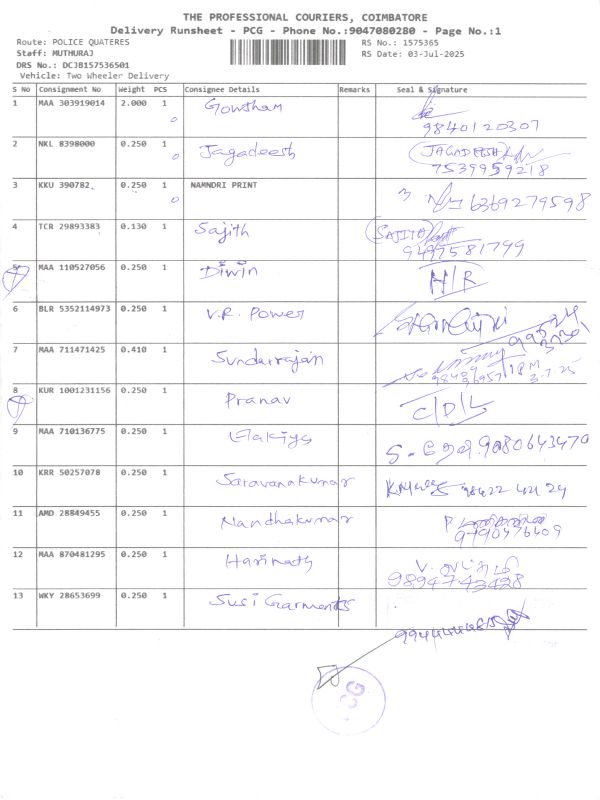 THE PROFESSIONAL COURIERS, COIMBATORE
Delivery Runsheet - PCG - Phone No.:9047080280 - Page No.:1
Route: POLICE QUATERES RS No.: 1575365
Staff: MUTHURAJ RS Date: 03-Jul-2025
DRS No.: DCJB157536501
Vehicle: Two Wheeler Delivery
S No Consignment No Weight PCS Consignee Details Remarks Seal & Signature
1 MAA 303919014 2.000 1 Gowtham
9840120307
2 NKL 8398000 0.250 1 Jagadeesh JAGADEESH
7539959218
3 KKU 390782 0.250 1 NAMNDRI PRINT 6369279598
4 TCR 29893383 0.130 1 Sajith SAJITH
9497581799
5 MAA 110527056 0.250 1 Diwin H/R
6 BLR 5352114973 0.250 1 V.R. Power
7 MAA 711471425 0.410 1 Sundarrajan
3-7-25
8 KUR 1001231156 0.250 1 Pranav C/D/L
9 MAA 710136775 0.250 1 Elakiya 9080643470
10 KRR 50257078 0.250 1 Saravanakumar 98422 42124
11 AMD 28849455 0.250 1 Nandhakumar P
9790476409
12 MAA 870481295 0.250 1 Harinath V.
9894743428
13 WKY 28653699 0.250 1 Susi Garments
PCG